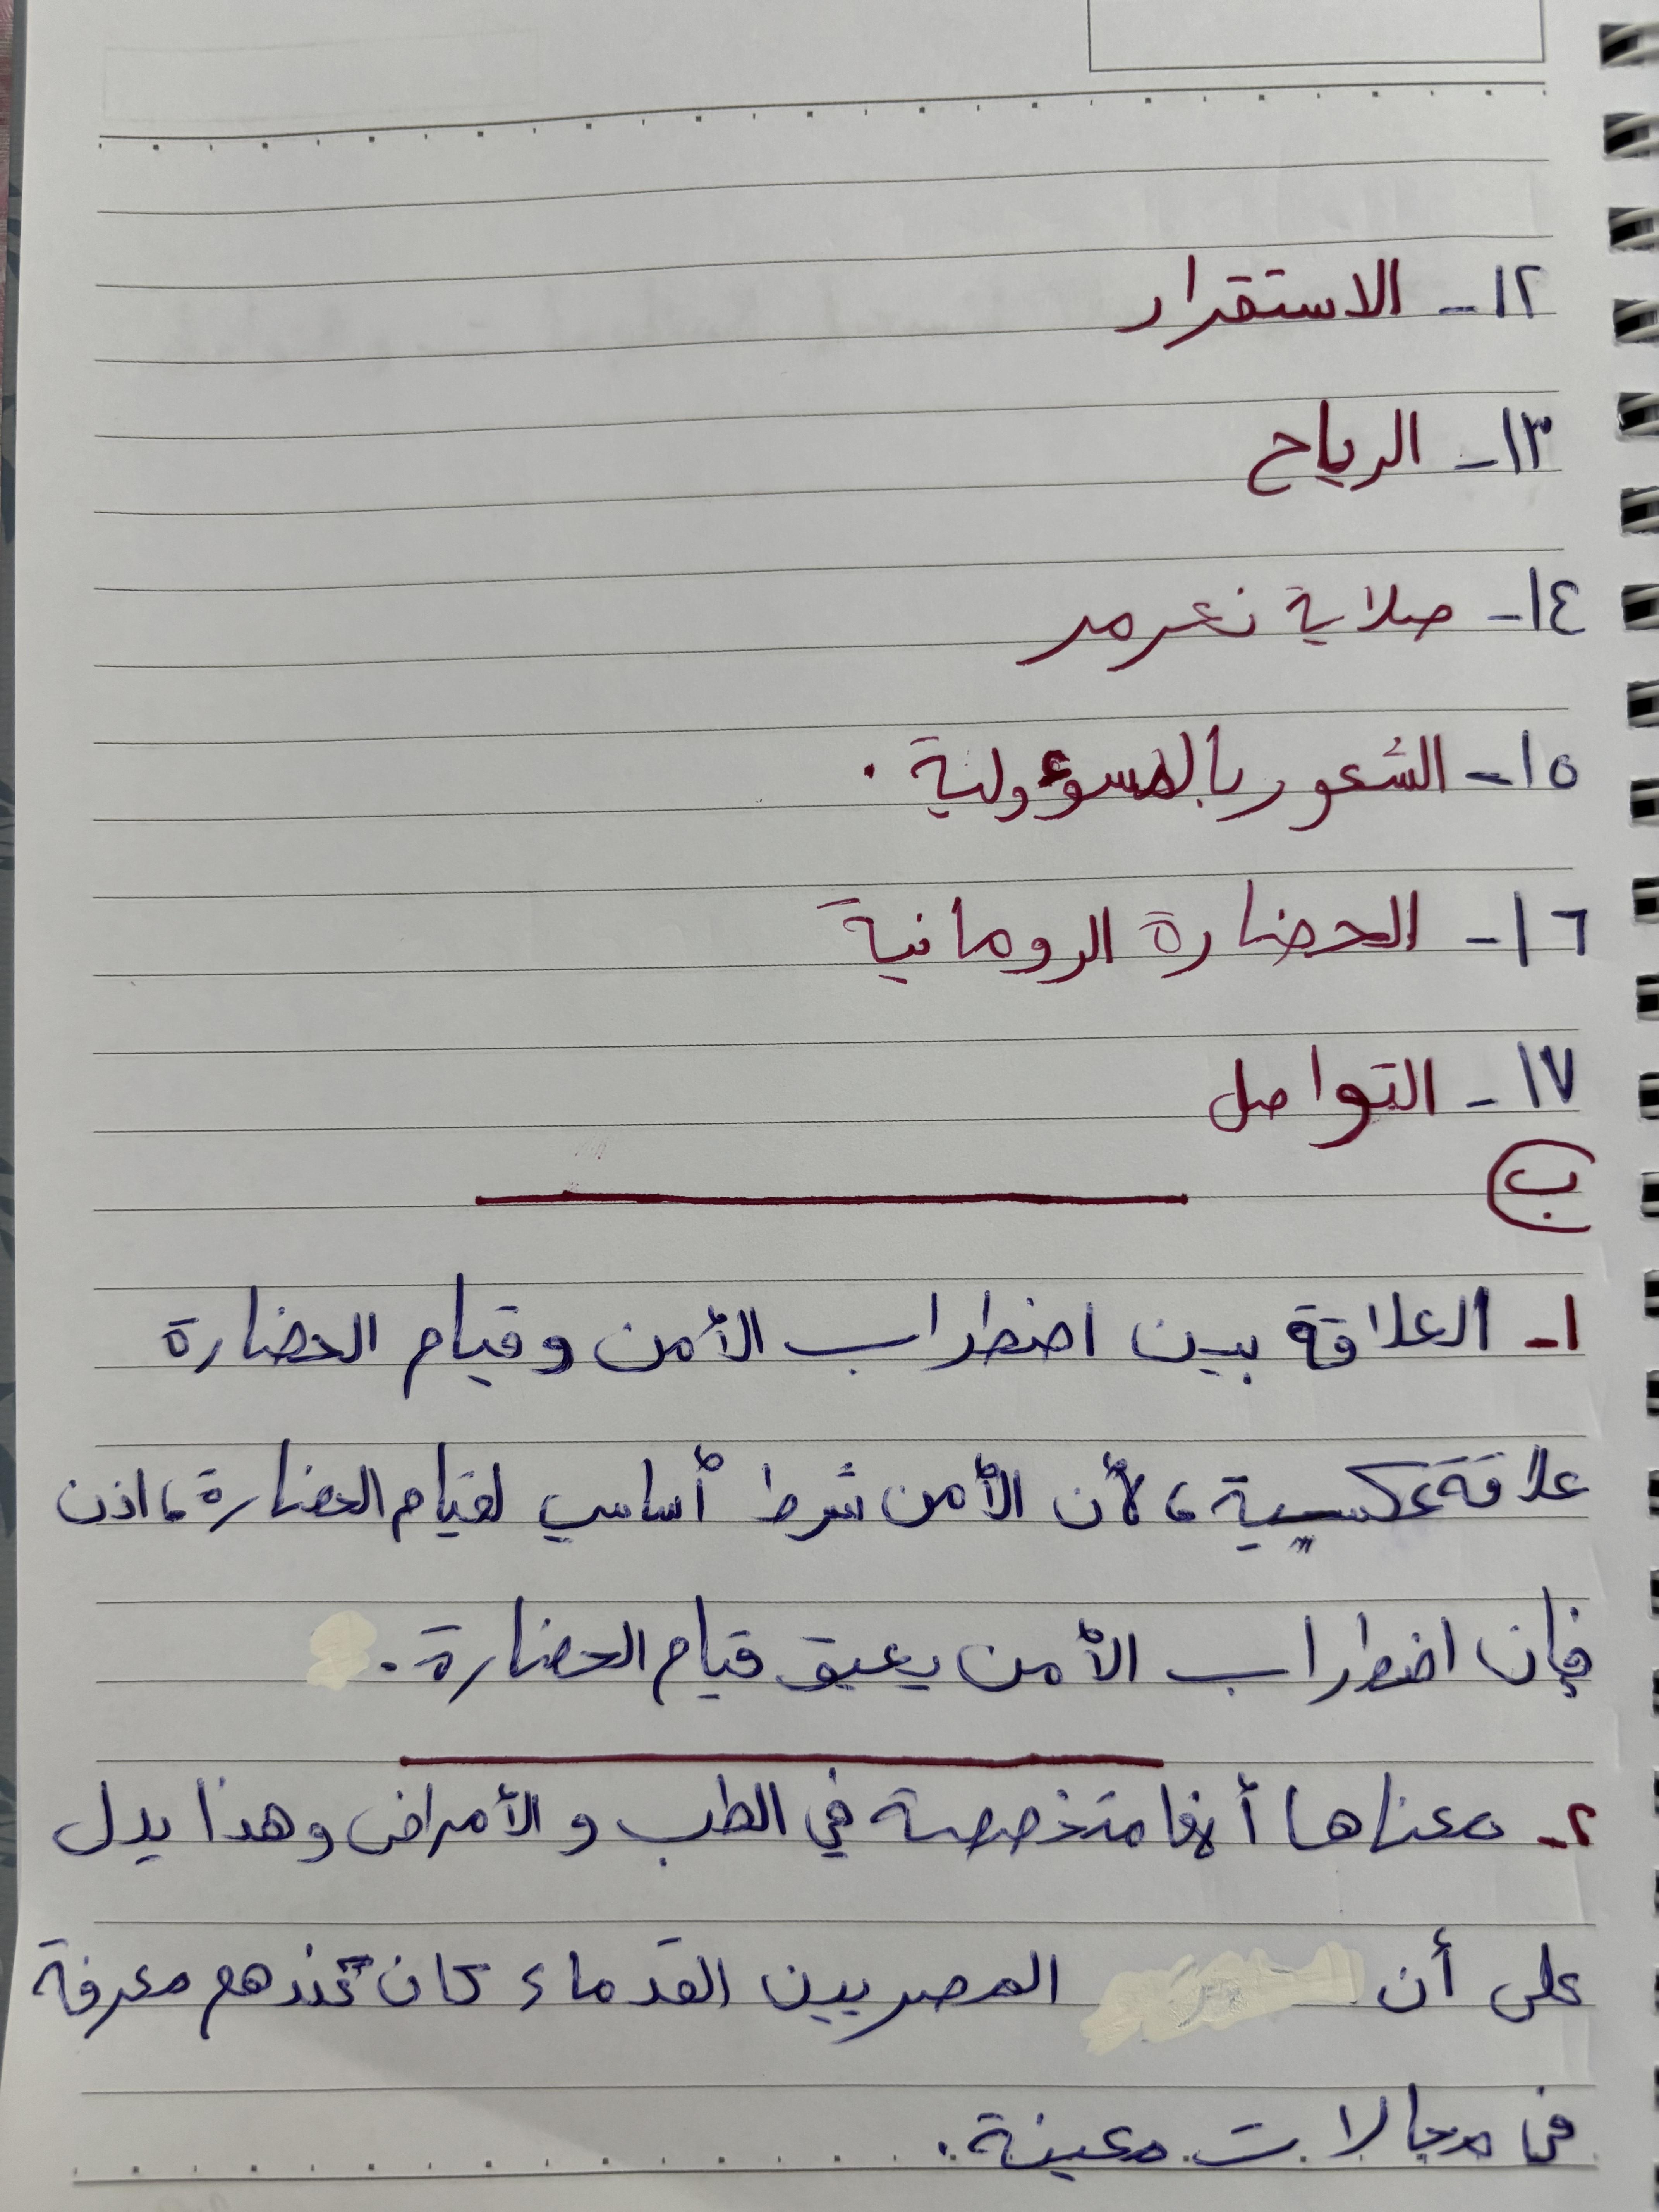 ١٢- الاستقرار
١٣- الرياح
١٤- صلاية نعرمر
١٥- الشعور بالمسوءولية .
١٦- الحضارة الرومانية
١٧- التواصل
ب
١- العلاقة بين اضطراب الأمن وقيام الحضارة
علاقة عكسية، لأن الأمن شرط أساسي لقيام الحضارة، اذن
فإن اضطراب الأمن يعيق قيام الحضارة.
٢- معناها أنها متخصصة في الطب والأمراض وهذا يدل
على أن المصريين القدماء كان عندهم معرفة
في مجالات معينة.